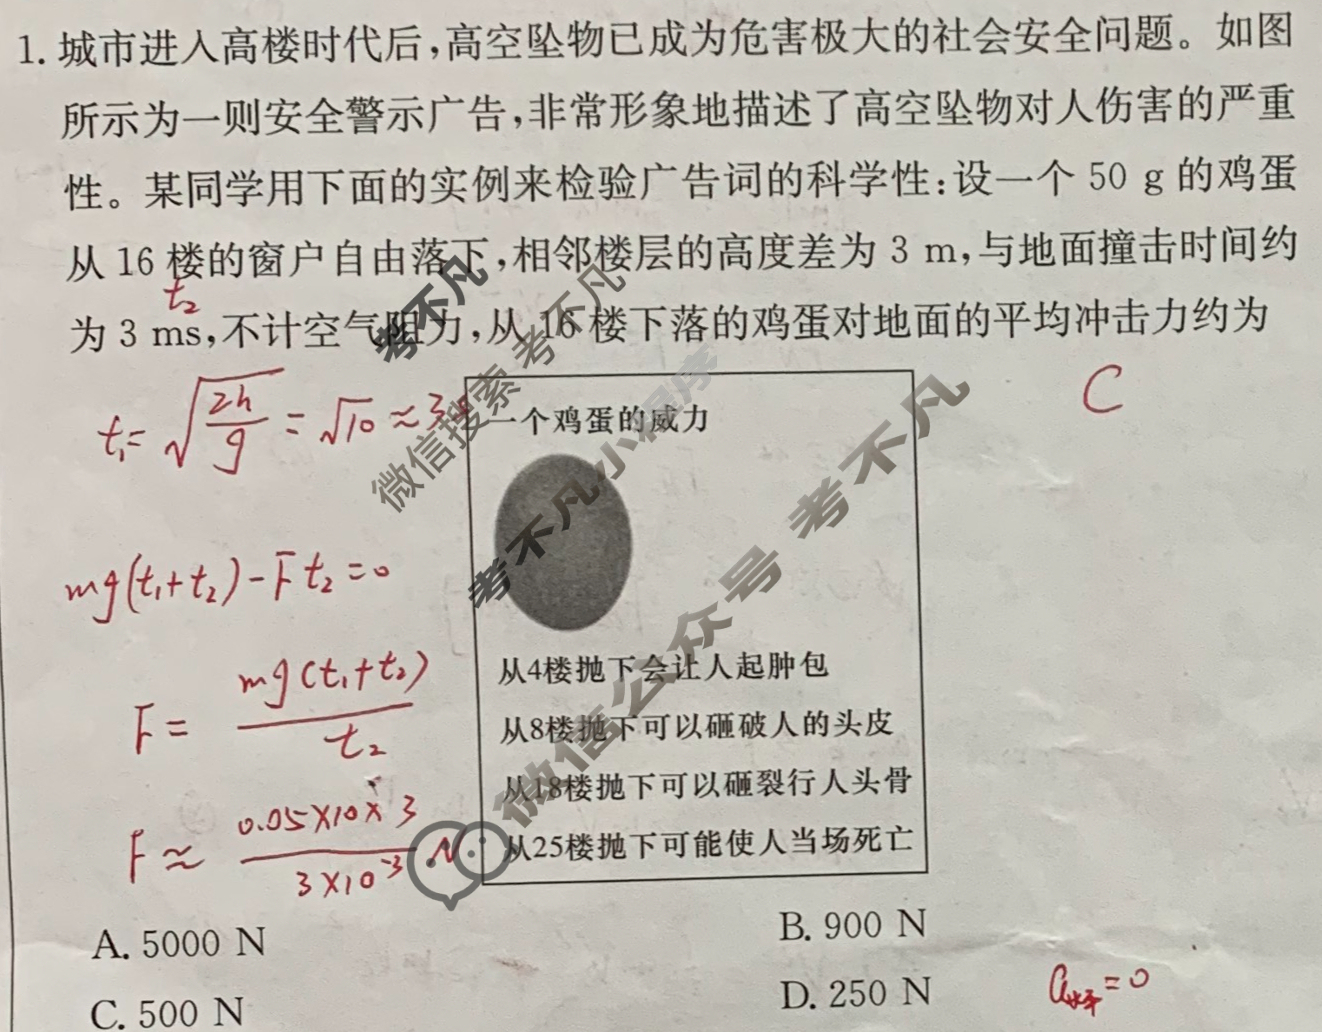 1. 城市进入高楼时代后,高空坠物已成为危害极大的社会安全问题。如图
所示为一则安全警示广告,非常形象地描述了高空坠物对人伤害的严重
性。某同学用下面的实例来检验广告词的科学性:设一个 50 g 的鸡蛋
从 16 楼的窗户自由落下,相邻楼层的高度差为 3 m,与地面撞击时间约
t₂
为 3 ms,不计空气阻力,从 16 楼下落的鸡蛋对地面的平均冲击力约为
C
t₁=√(2h/g)=√10≈3s
一个鸡蛋的威力
mg(t₁+t₂)-Ft₂=0
F= mg(t₁+t₂)/t₂
F≈ 0.05×10×3/3×10⁻³ N
从4楼抛下会让人起肿包
从8楼抛下可以砸破人的头皮
从18楼抛下可以砸裂行人头骨
从25楼抛下可能使人当场死亡
A. 5000 N
B. 900 N
C. 500 N
D. 250 N
a水平=0
考不凡
微信搜索 考不凡
考不凡小程序
微信公众号 考不凡